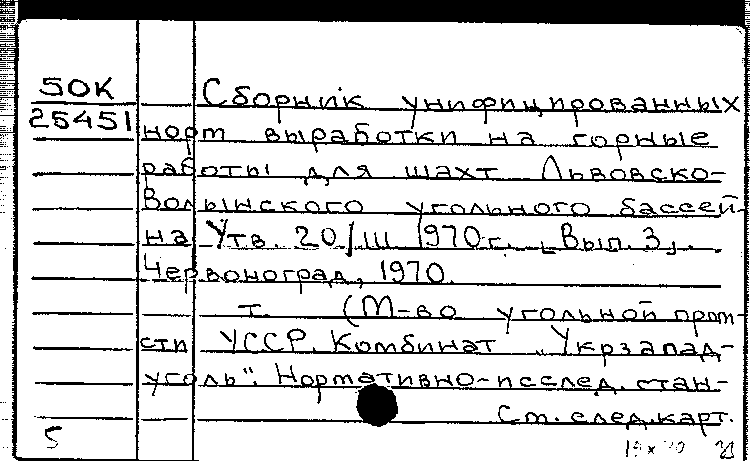 50К Сборник унифицированных
25451 норт выработки на горные
работы для шахт Львовско-
Волынского угольного бассей-
на Утв. 20/III 1970 г. [Вып. 3].
Червоноград, 1970.
т. (М-во угольной пром-
сти УССР. Комбинат „Укрзапад-
уголь". Нормативно-исслед. стан-
См. след. карт.
5